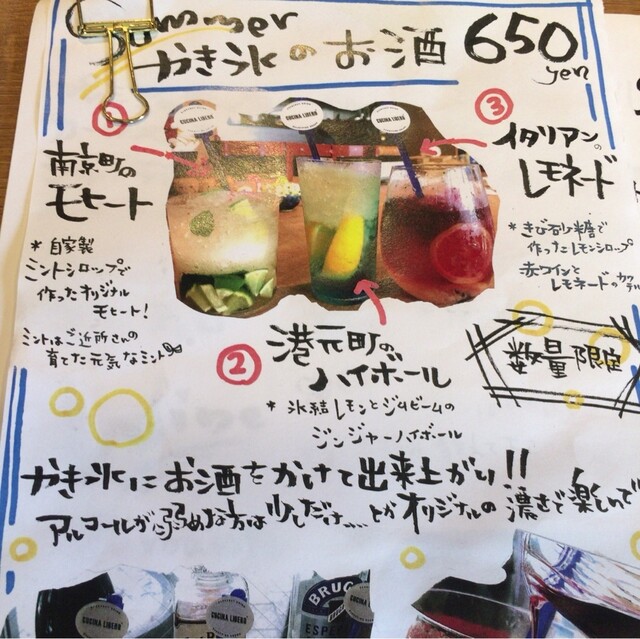 Summer
かき氷のお酒 650
yen
①
南京町の
モヒート
* 自家製
ミントシロップで
作ったオリジナル
モヒート!
ミントはご近所さんの
育てた元気なミント
CUCINA LIBERO
CUCINA LIBERO
CUCINA LIBERO
③
イタリアンの
レモネード
* きび砂糖で
作ったレモンシロップ
赤ワインと
レモネードのカクテル
②
港元町の
ハイボール
* 氷結レモンとジムビームの
ジンジャーハイボール
数量限定
かき氷にお酒をかけて出来上がり!!
アルコールが弱めな方は少しだけ…とかオリジナルの濃さで楽しんで
CUCINA LIBERO
CUCINA LIBERO
BRUG
ESP
CUCINA LIBERO